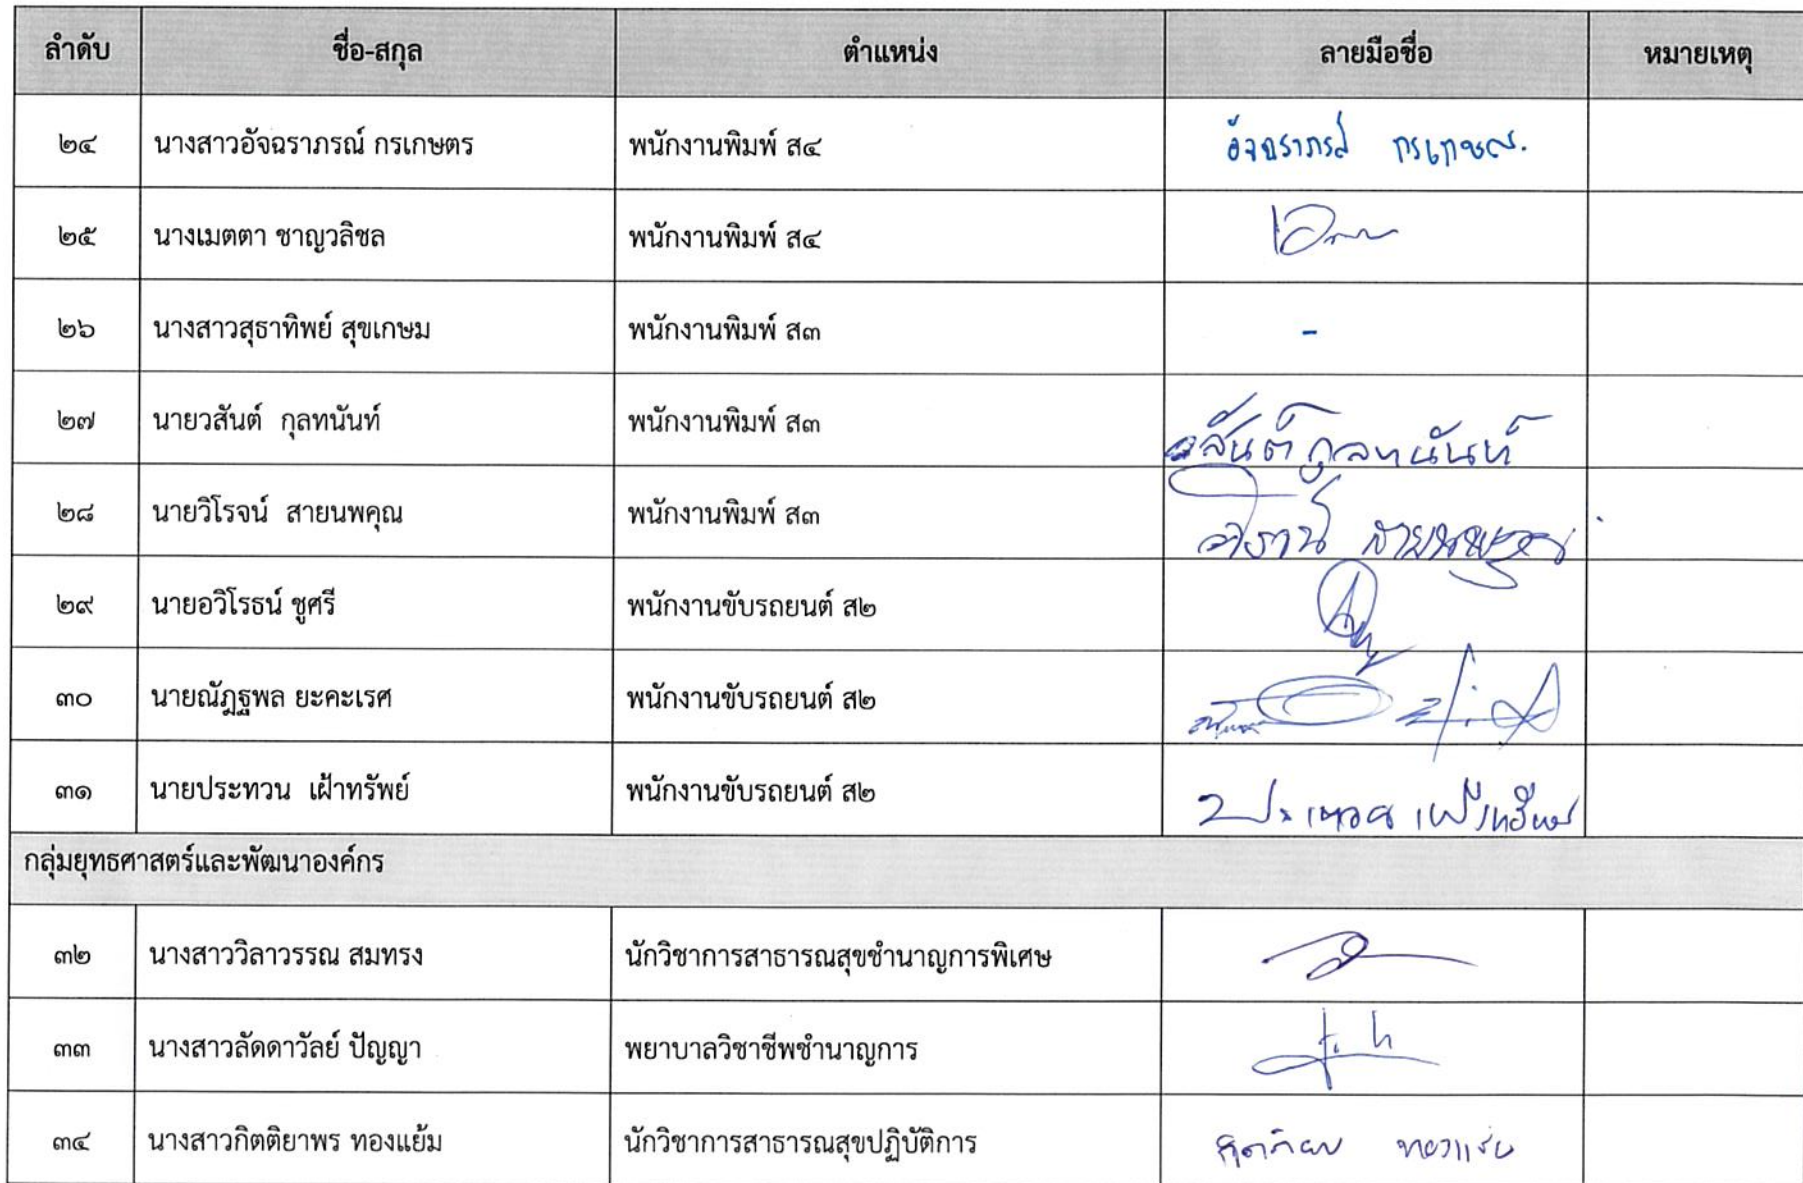 ลำดับ ชื่อ-สกุล ตำแหน่ง ลายมือชื่อ หมายเหตุ
๒๔ นางสาวอัจฉราภรณ์ กรเกษตร พนักงานพิมพ์ ส๔ อัจฉราภรณ์ กรเกษตร.
๒๕ นางเมตตา ชาญวลิชล พนักงานพิมพ์ ส๔
๒๖ นางสาวสุธาทิพย์ สุขเกษม พนักงานพิมพ์ ส๓ -
๒๗ นายวสันต์ กุลทนันท์ พนักงานพิมพ์ ส๓ วสันต์ กุลทนันท์
๒๘ นายวิโรจน์ สายนพคุณ พนักงานพิมพ์ ส๓ วิโรจน์ สายนพคุณ
๒๙ นายอวิโรธน์ ชูศรี พนักงานขับรถยนต์ ส๒
๓๐ นายณัฏฐพล ยะคะเรศ พนักงานขับรถยนต์ ส๒
๓๑ นายประทวน เฝ้าทรัพย์ พนักงานขับรถยนต์ ส๒ ประทวน เฝ้าทรัพย์
กลุ่มยุทธศาสตร์และพัฒนาองค์กร
๓๒ นางสาววิลาวรรณ สมทรง นักวิชาการสาธารณสุขชำนาญการพิเศษ
๓๓ นางสาวลัดดาวัลย์ ปัญญา พยาบาลวิชาชีพชำนาญการ
๓๔ นางสาวกิตติยาพร ทองแย้ม นักวิชาการสาธารณสุขปฏิบัติการ